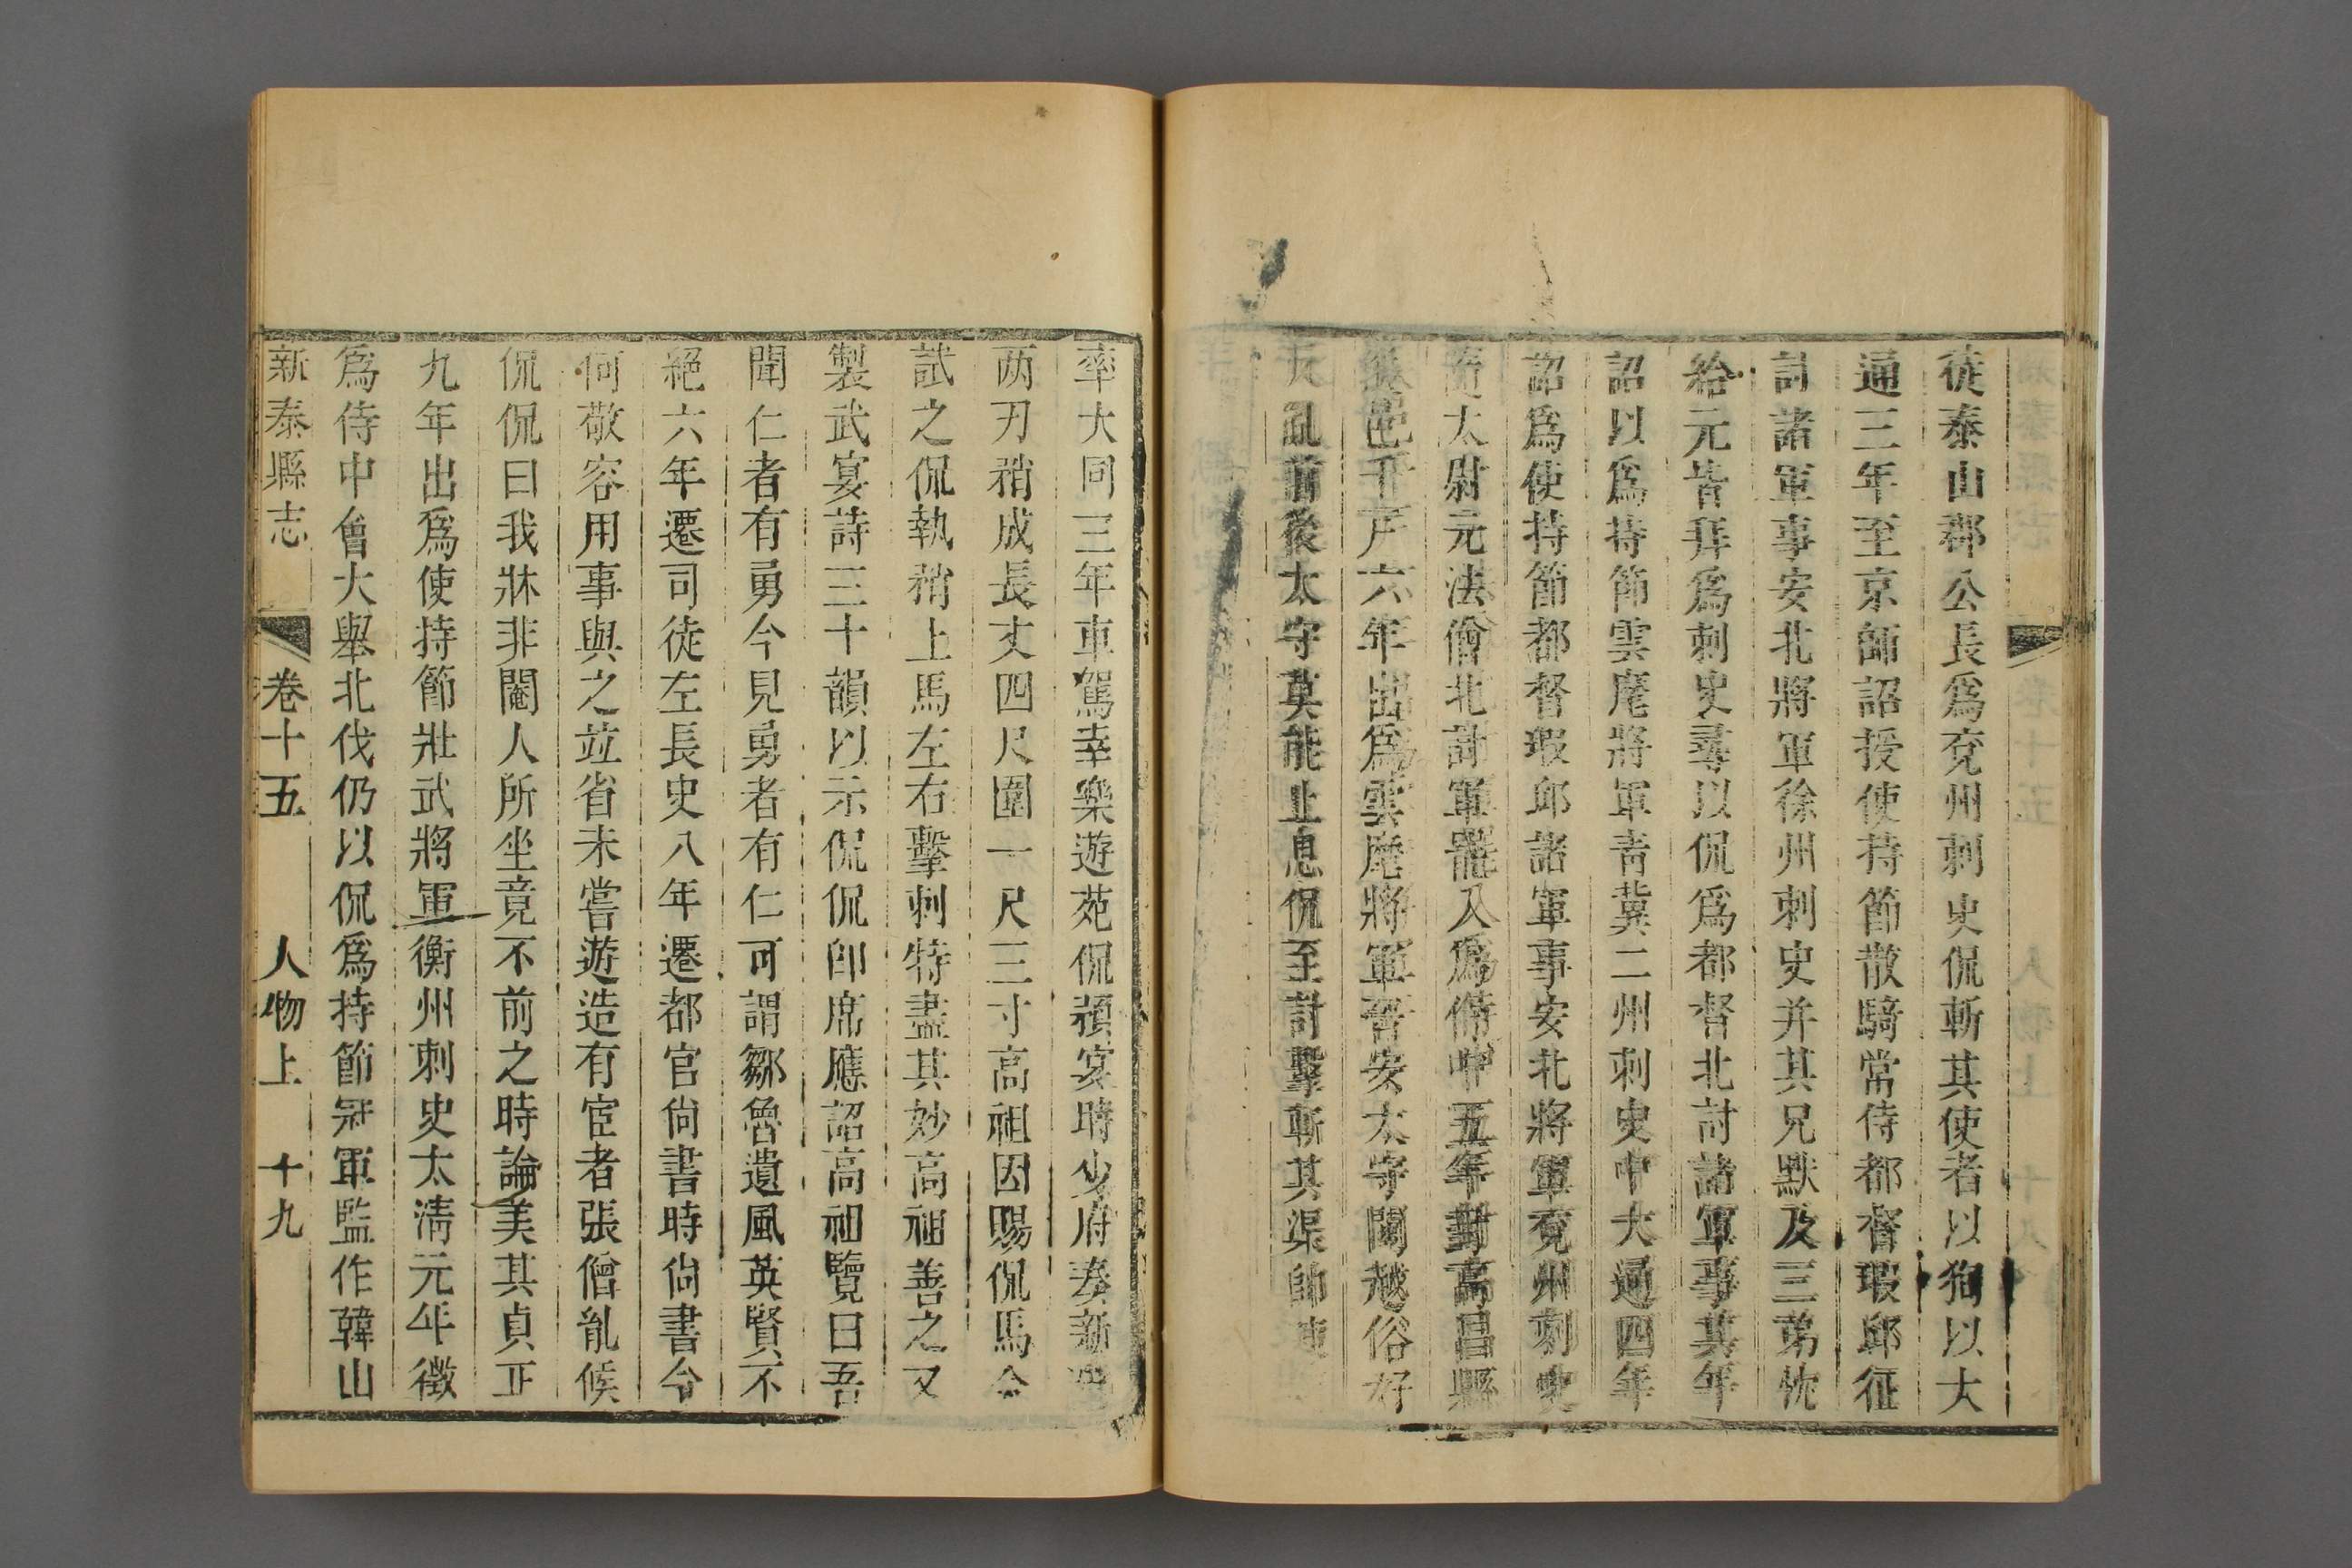 從泰山郡公長爲兗州刺史侃斬其使者以狥以大
通三年至京師詔授使持節散騎常侍都督瑕邱征
討諸軍事安北將軍徐州刺史并其兄默及三弟忱
給元皆拜爲刺史尋以侃爲都督北討諸軍事其年
詔以爲持節雲麾將軍青冀二州刺史中大通四年
詔爲使持節都督瑕邱諸軍事安北將軍兗州刺史
隨太尉元法僧北討軍罷入爲侍中五年封高昌縣
侯邑千戸六年出爲雲麾將軍晉安太守閩越俗好
反亂前後太守莫能止息侃至討擊斬其渠帥陳
率大同三年車駕幸樂遊苑侃預宴時少府奏新造
两刃稍成長丈四尺圍一尺三寸高祖因賜侃馬令
試之侃執稍上馬左右擊刺特盡其妙高祖善之又
製武宴詩三十韻以示侃侃卽席應詔高祖覽曰吾
聞仁者有勇今見勇者有仁可謂鄒魯遺風英賢不
絕六年遷司徒左長史八年遷都官尙書時尙書令
何敬容用事與之竝省未嘗遊造有宦者張僧胤候
侃侃曰我牀非閹人所坐竟不前之時論美其貞正
九年出爲使持節壯武將軍衡州刺史太淸元年徵
爲侍中會大舉北伐仍以侃爲持節冠軍監作韓山
新泰縣志 卷十五 人物上 十九